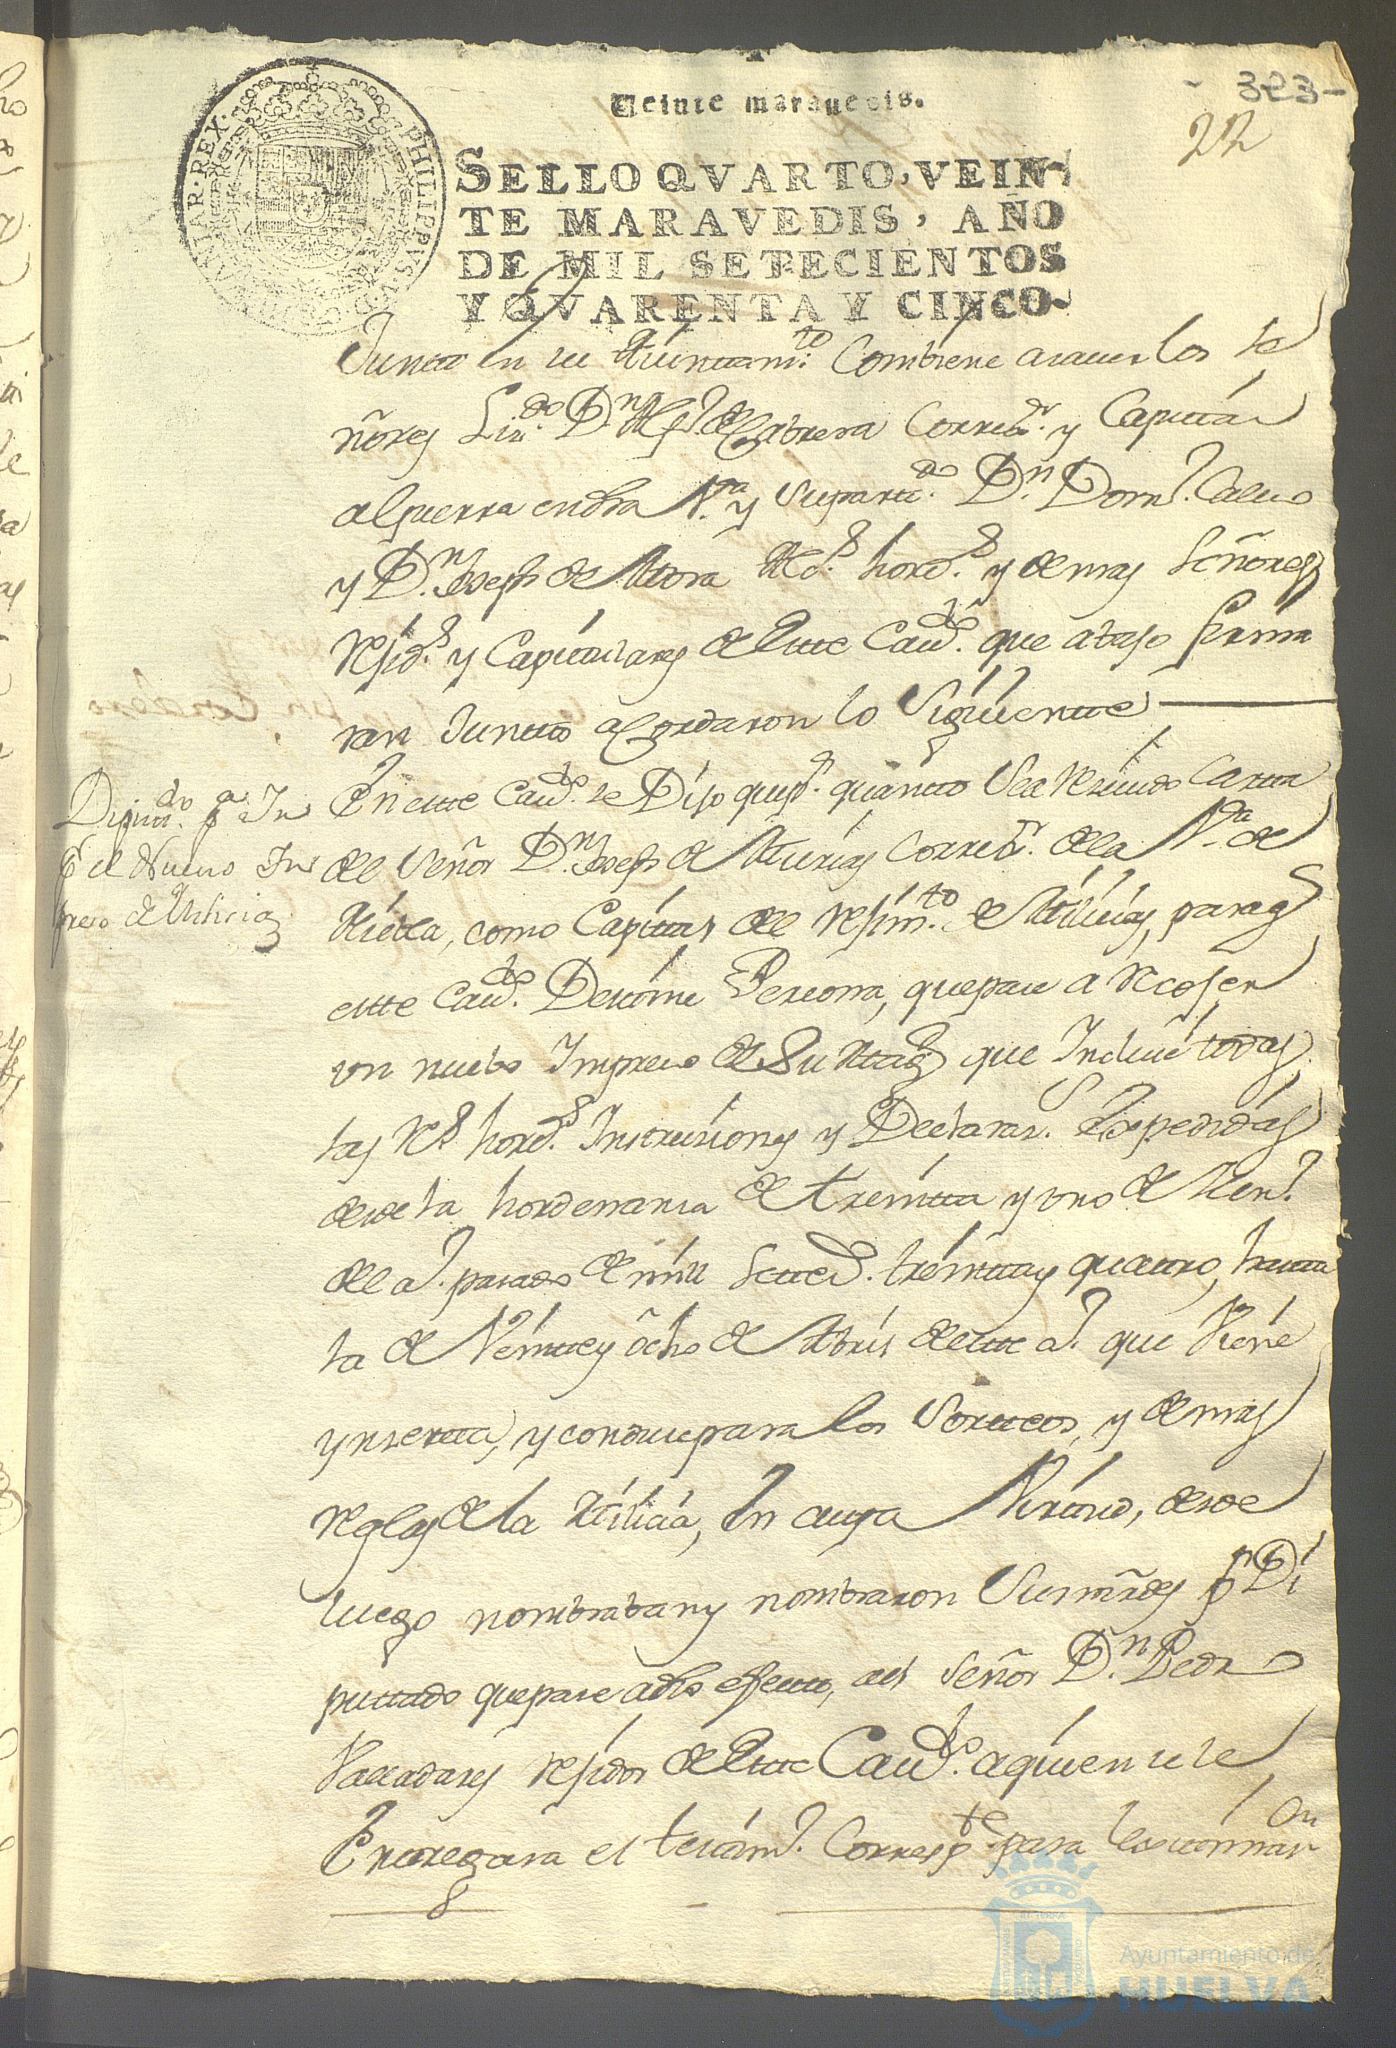 - 323 -
22
Veinte maravedis.
SELLO QVARTO, VEIN-
TE MARAVEDIS, AÑO
DE MIL SETECIENTOS
Y QVARENTA Y CINCO~
PHILIPPVS V D G HISPANIAR REX
Junta en su Aiuntam.to Combiene a saver los Se
ñores Liz.do D.n de Cabrera Correx.r y Capitan
a Guerra en dha V.a y su part.do D.n Dom.o Calvo
y D.n Joseph de Mora Alc.s hord.s y demas Señores
Rejid.s y Capitulares de Este Cav.do que abajo firma
ran Juntto acordaron lo Siguientte
Diputt.do p.a
q.e el Nuevo Im
preso de Milicias
En este Cav.do se Dijo que p.r quantto Sea Resiuido Cartta
del Señor D.n Joseph de Correx.r de la V.a de
Niebla, como Capittan del Rejim.to de Milicias, para q.e
este Cav.do Destine Persona, que pase a Recojer
un nuebo Impreso de Su Mag.d que Incluie todas
las R.s hord.s Instrusiones y Declaras. Expedidas
desde la hordenansa de treintta y uno de Hen.o
del a.o pasado de mill Settec.s treintta y quattro, hastta
la de Veintte y ocho de Abril de este a.o que Viene
ynsertta, y conduse para los Sortteos, y demas
reglas de la Milicia, En cuya Virtud, desde
luego nombraban y nombraron Sus mrdes p.r Di
puttado que pase a dho efectto, al Señor D.n Pedro
Valladares rejidor de Este Cav.do a quien se le
Entregara el testim.o Corresp.te para
Ayuntamiento de
HUELVA